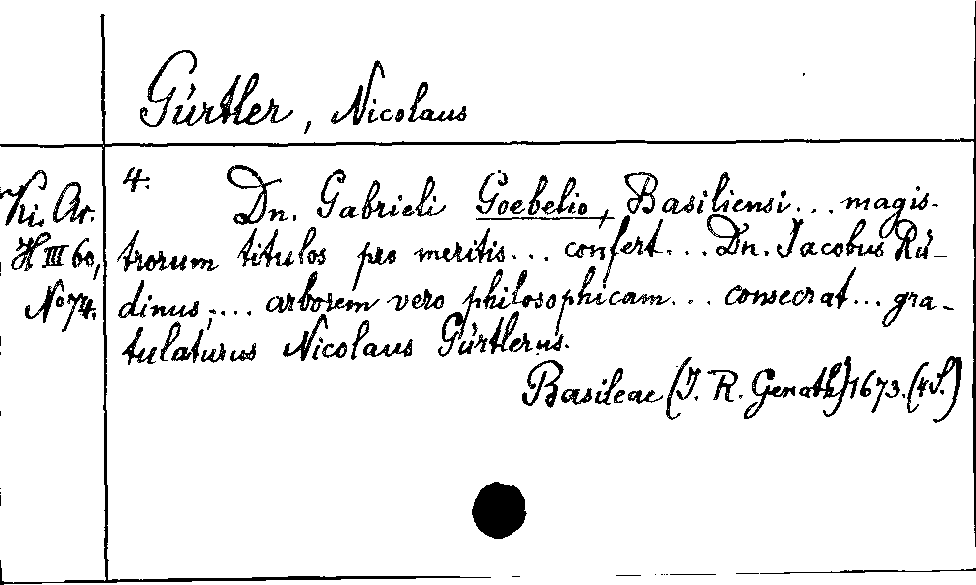 Gürtler, Nicolaus
Ki. Ar.
H III 60,
No 74.
4.
Dn. Gabrieli Goebelio, Basiliensi... magis-
trorum titulos pro meritis... confert... Dn. Jacobus Rü-
dinus,... arborem vero philosophicam... consecrat... gra-
tulaturus Nicolaus Gürtlerus.
Basileae (J. R. Genath) 1673. (4 S.)